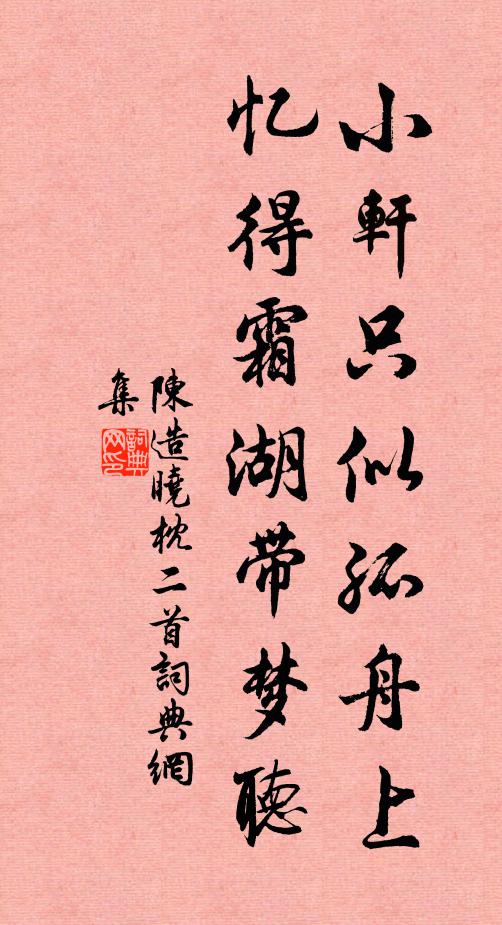 小軒只似孤舟上
忆得霜湖带梦聽
陳造曉枕二首詞典網
集
詞典
网印